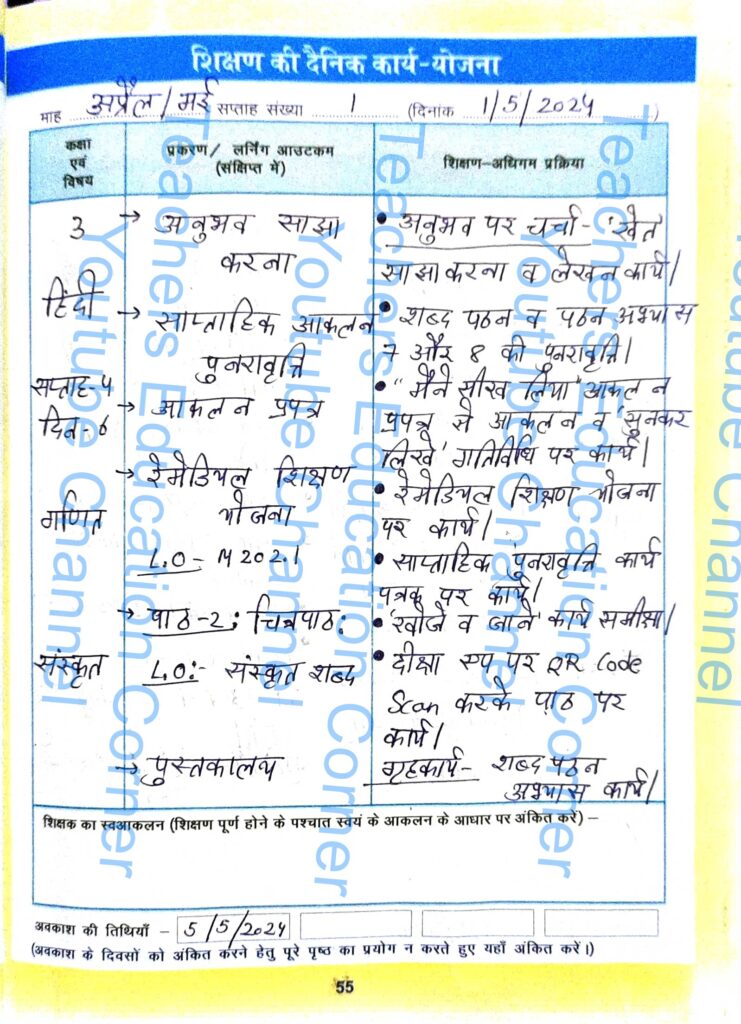 शिक्षण की दैनिक कार्य-योजना
माह अप्रैल/मई सप्ताह संख्या 1 (दिनांक 1/5/2024)
कक्षा एवं विषय
प्रकरण/ लर्निंग आउटकम (संक्षिप्त में)
शिक्षण-अधिगम प्रक्रिया
3
हिंदी
सप्ताह-4
दिन-6
गणित
संस्कृत
→ अनुभव साझा
करना
→ साप्ताहिक आकलन
पुनरावृत्ति
→ आकलन प्रपत्र
→ रेमेडियल शिक्षण
योजना
L.O- M 202.1
→ पाठ-2; चित्रपाठ:
L.O:- संस्कृत शब्द
→ पुस्तकालय
• अनुभव पर चर्चा- 'खेत'
साझा करना व लेखन कार्य।
• शब्द पठन व पठन अभ्यास
7 और 8 की पुनरावृत्ति।
• "मैंने सीख लिया" आकलन
प्रपत्र से आकलन व 'सुनकर
लिखें' गतिविधि पर कार्य।
• रेमेडियल शिक्षण योजना
पर कार्य।
• साप्ताहिक पुनरावृत्ति कार्य
पत्रक पर कार्य।
• 'खोजें व जानें' कार्य समीक्षा।
• दीक्षा एप पर QR Code
Scan करके पाठ पर
कार्य।
गृहकार्य- शब्द पठन
अभ्यास कार्य।
शिक्षक का स्वआकलन (शिक्षण पूर्ण होने के पश्चात स्वयं के आकलन के आधार पर अंकित करें) –
अवकाश की तिथियाँ – 5/5/2024
(अवकाश के दिवसों को अंकित करने हेतु पूरे पृष्ठ का प्रयोग न करते हुए यहाँ अंकित करें।)
55
Teachers Education Corner
Youtube Channel
Teachers Education Corner
Youtube Channel
Teachers Education Corner
Youtube Channel
Youtube Channel